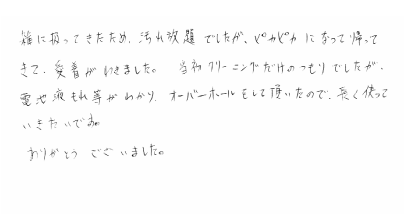 雑に扱ってきたため、汚れ放題でしたが、ピカピカになって帰って
きて、愛着がわきました。 当初クリーニングだけのつもりでしたが、
電池液もれ等がわかり、オーバーホールをして頂いたので、長く使って
いきたいです。
ありがとうございました。